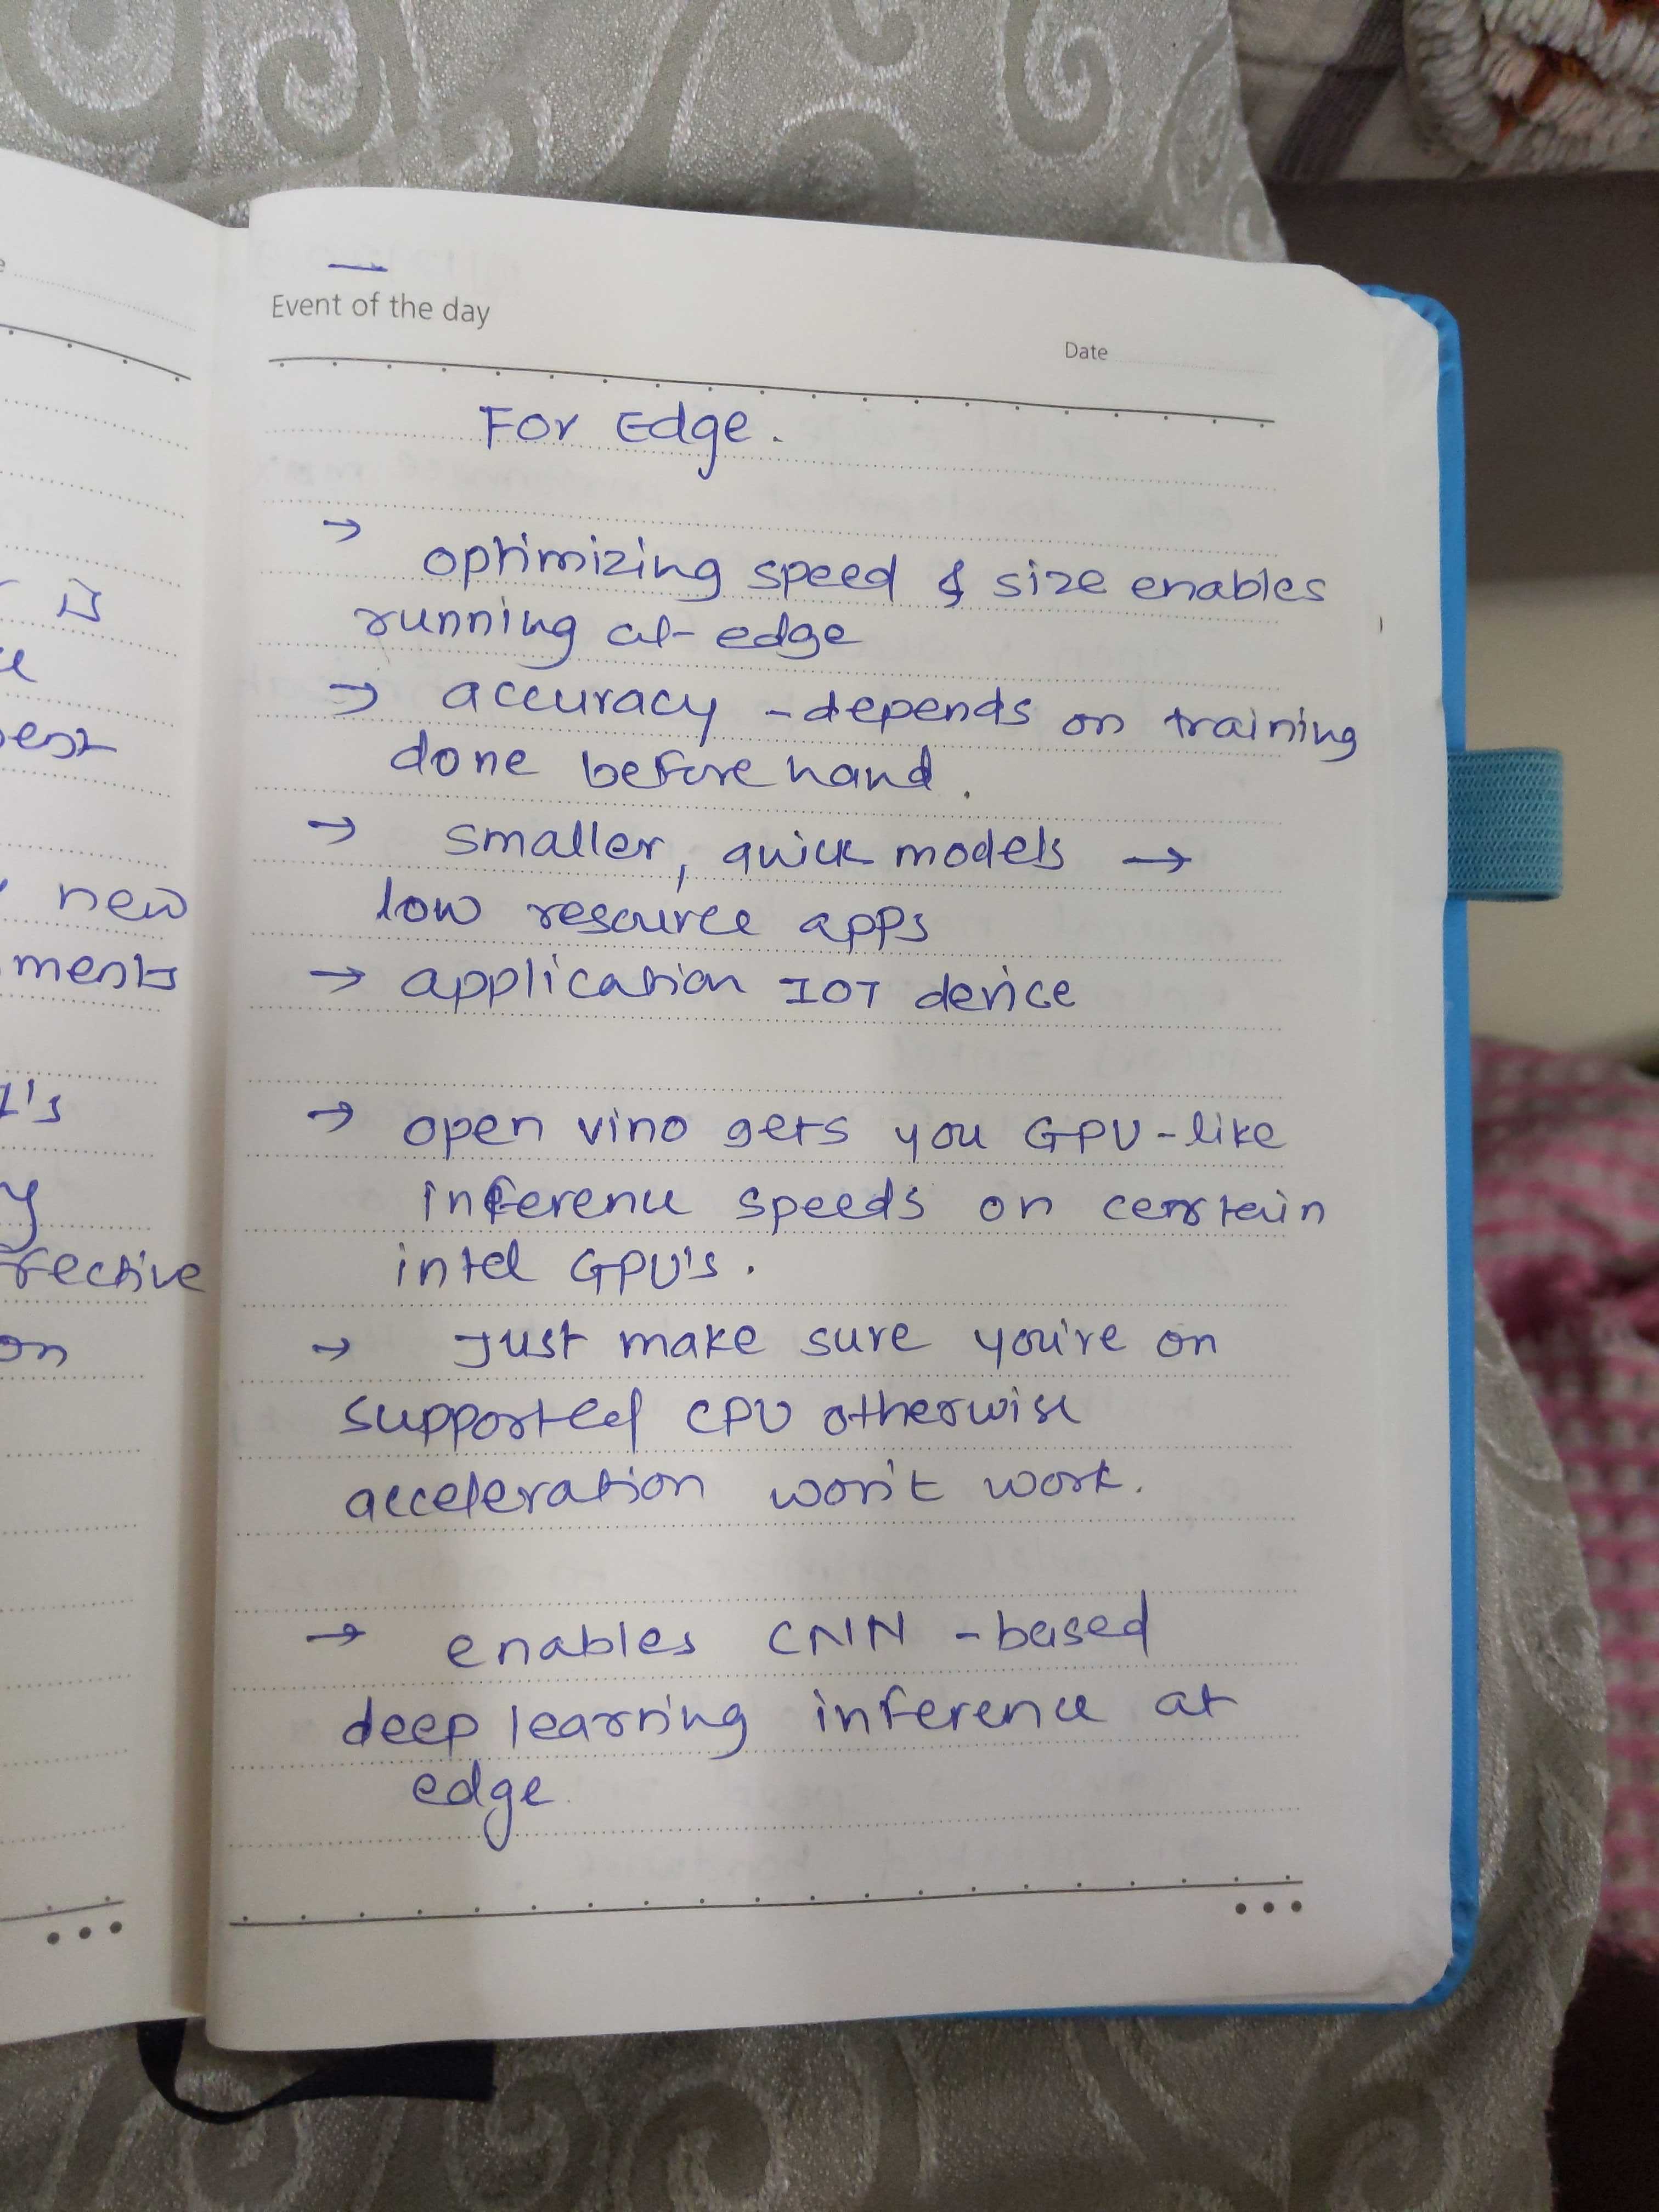 is
new
ments
Event of the day
Date
For Edge.
→ optimizing speed & size enables
running at edge
→ accuracy - depends on training
done before hand.
→ smaller, quick models →
low resource apps
→ application IOT device
→ open vino gets you GPU-like
inference speeds on certain
intel GPU's.
→ Just make sure you're on
supported CPU otherwise
acceleration won't work.
→ enables CNN -based
deep learning inference at
edge